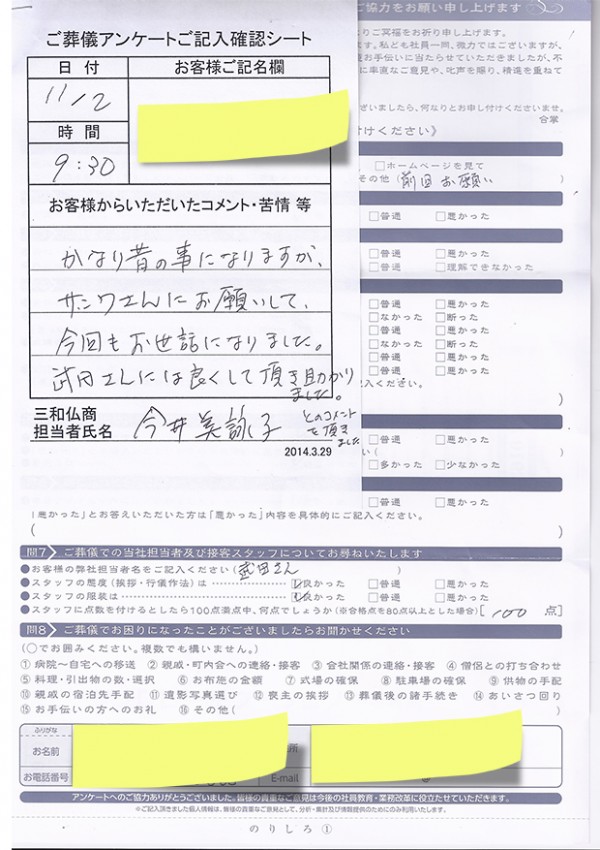 ご協力をお願い申し上げます
ご葬儀アンケートご記入確認シート
日付
お客様ご記名欄
11/2
時間
9:30
お客様からいただいたコメント・苦情 等
かなり昔の事になりますが、
サンワさんにお願いして、
今回もお世話になりました。
武田さんには良くして頂き助かり
ました。
とのコメント
を頂き
ました
三和仏商
担当者氏名
今井美詠子
2014.3.29
りご冥福をお祈り申し上げます。
す。私ども社員一同、微力ではございますが、
お手伝いに当たらせていただきましたが、不
に率直なご意見や、叱声を賜り、精進を重ねて
ざいましたら、何なりとお申し付けくださいませ。
合掌
付けください》
□ホームページを見て
その他(前回お願い)
□普通 □悪かった
□普通 □悪かった
□普通 □理解できなかった
□普通 □悪かった
□なかった □断った
□普通 □悪かった
□なかった □断った
□普通 □悪かった
□普通 □悪かった
記入ください。
□普通 □悪かった
□多かった □少なかった
□普通 □悪かった
「悪かった」とお答えいただいた方は「悪かった」内容を具体的にご記入ください。
問7 ご葬儀での当社担当者及び接客スタッフについてお尋ねいたします
●お客様の弊社担当者名をご記入ください(武田さん)
●スタッフの態度(挨拶・行儀作法)は □良かった □普通 □悪かった
●スタッフの服装は □良かった □普通 □悪かった
●スタッフに点数を付けるとしたら100点満点中、何点でしょうか(※合格点を80点以上とした場合)[100 点]
問8 ご葬儀でお困りになったことがございましたらお聞かせください
(○でお囲みください。複数でも構いません。)
①病院〜自宅への移送 ②親戚・町内会への連絡・接客 ③会社関係の連絡・接客 ④僧侶との打ち合わせ
⑤料理・引出物の数・選択 ⑥お布施の金額 ⑦式場の確保 ⑧駐車場の確保 ⑨供物の手配
⑩親戚の宿泊先手配 ⑪遺影写真選び ⑫喪主の挨拶 ⑬葬儀後の諸手続き ⑭あいさつ回り
⑮お手伝いの方へのお礼 ⑯その他( )
ふりがな
お名前
お電話番号
E-mail
アンケートへのご協力ありがとうございました。皆様の貴重なご意見は今後の社員教育・業務改革に役立たせていただきます。
※ご記入頂きました個人情報は、皆様の貴重なご意見として、分析・集計及び情報提供のためにのみ利用いたします。
のりしろ①